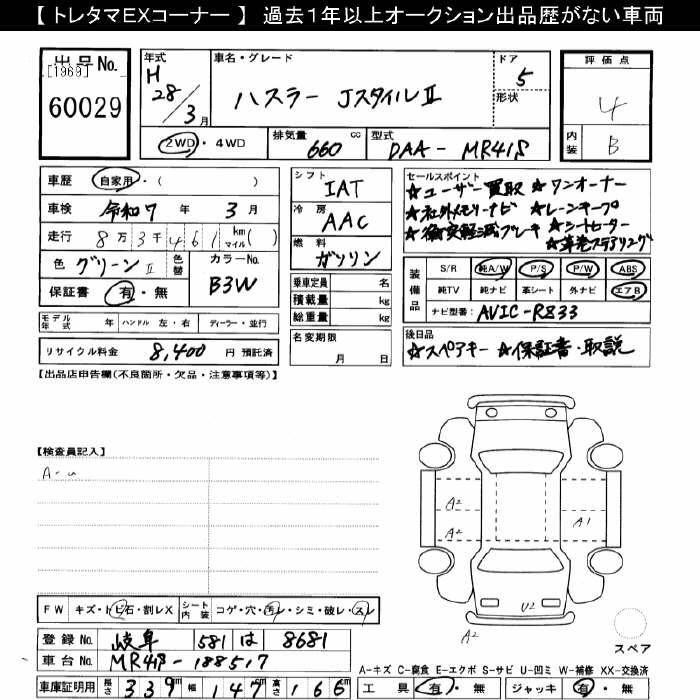 【 トレタマEXコーナー 】 過去１年以上オークション出品歴がない車両
出品No. [1969] 60029
年式 H 28/3月
車名・グレード ハスラー JスタイルⅡ
ドア 5
形状
2WD ・ 4WD
排気量 660 cc
型式 DAA - MR41S
評価点 4
内装 B
車歴 自家用・( )
車検 令和7 年 3 月
走行 8万3千461 km マイル( )
色 グリーンⅡ 色替 カラーNo. B3W
保証書 有・無
モデル年式 年 ハンドル 左・右 ディーラー・並行
リサイクル料金 8,400 円 預託済
シフト IAT
冷房 AAC
燃料 ガソリン
乗車定員 名
積載量 kg
総重量 kg
名変期限 月 日
セールスポイント
☆ユーザー買取 ☆ワンオーナー
☆社外メモリーナビ ☆レーンキープ
☆衝突軽減ブレーキ ☆シートヒーター
☆革巻ステアリング
装備品 S/R 純A/W P/S P/W ABS
純TV 純ナビ 革シート 外ナビ エアB
ナビ型番: AVIC-RZ33
後日品
☆スペアキー ☆保証書・取説
【出品店申告欄(不良箇所・欠品・注意事項等)】
【検査員記入】
A-u
A2
A2
A1
U2
A2
スペア
FW キズ・トビ石・割レX シート内装 コゲ・穴・汚レ・シミ・破レ・スレ
登録No. 岐阜 581 は 8681
車台No. MR41S-188517
車庫証明用 長さ 339cm 幅 147cm 高さ 166cm
A-キズ C-腐食 E-エクボ S-サビ U-凹ミ W-補修 XX-交換済
工具 有・無 ジャッキ 有・無